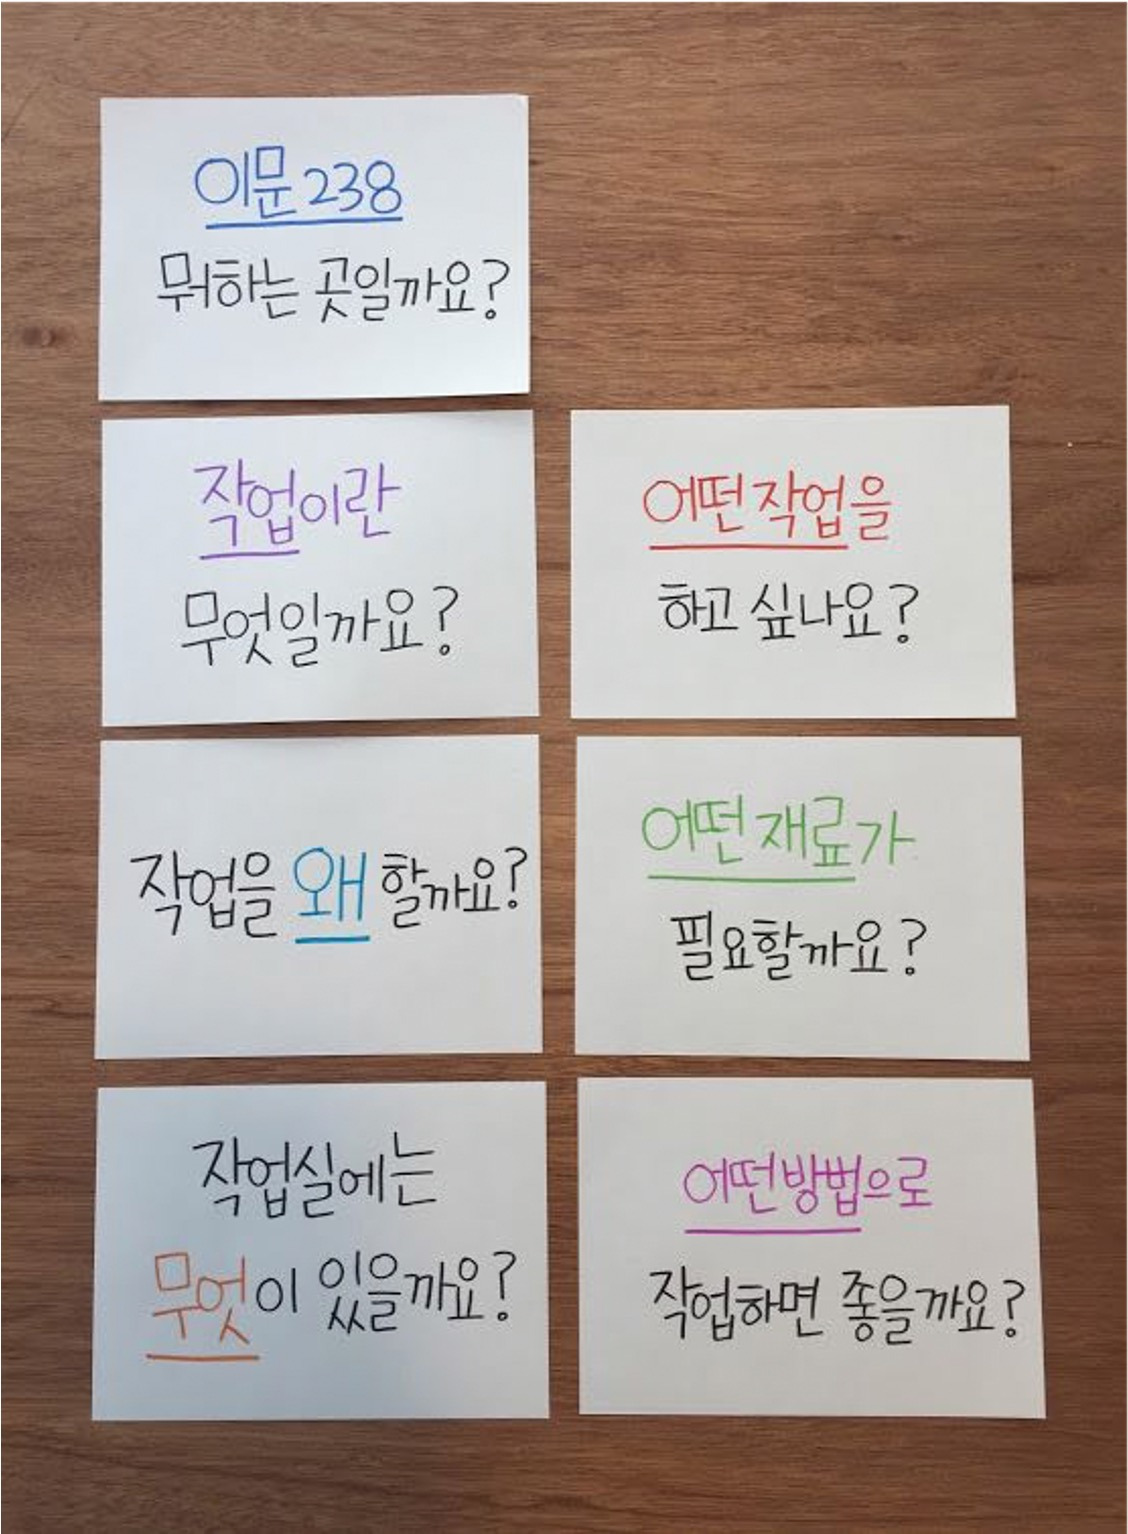 이문238
뭐하는 곳일까요?
작업이란
무엇일까요?
어떤 작업을
하고 싶나요?
작업을 왜 할까요?
어떤 재료가
필요할까요?
작업실에는
무엇이 있을까요?
어떤 방법으로
작업하면 좋을까요?